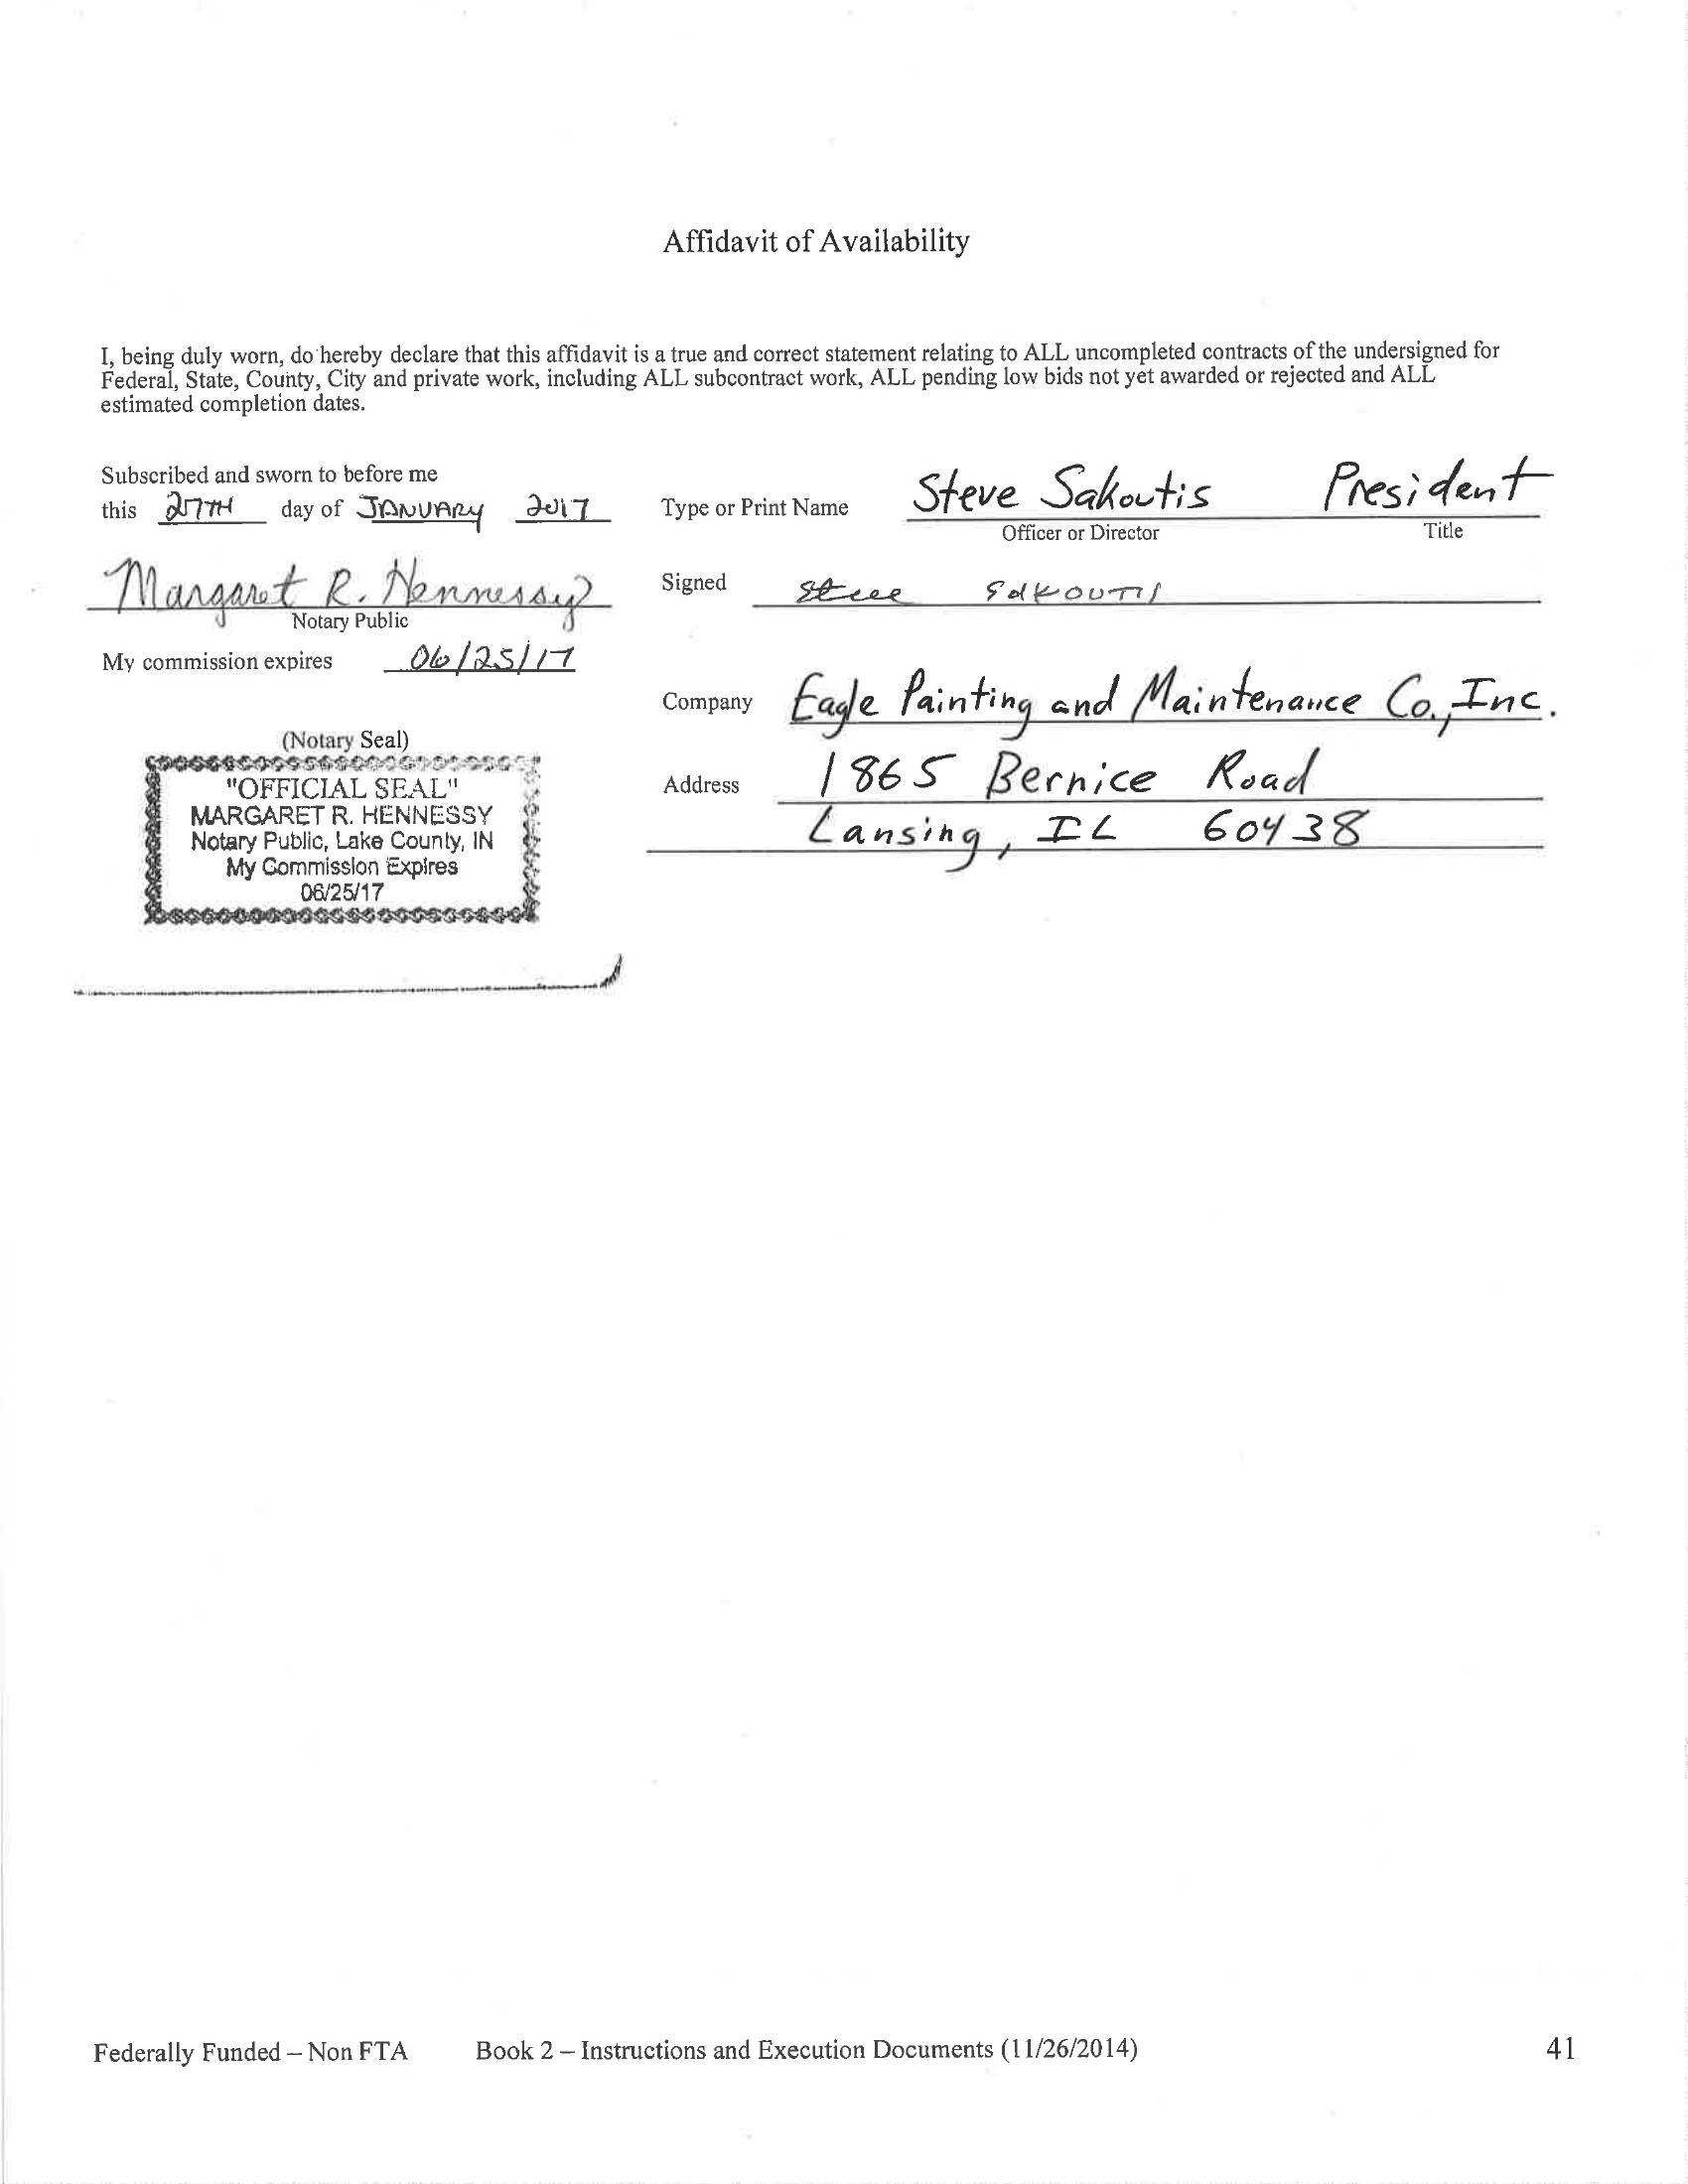 Affidavit of Availability
I, being duly worn, do hereby declare that this affidavit is a true and correct statement relating to ALL uncompleted contracts of the undersigned for
Federal, State, County, City and private work, including ALL subcontract work, ALL pending low bids not yet awarded or rejected and ALL
estimated completion dates.
Subscribed and sworn to before me
this 27TH day of JANUARY 2017
Margaret R. Hennessy
Notary Public
My commission expires 06/25/17
(Notary Seal)
"OFFICIAL SEAL"
MARGARET R. HENNESSY
Notary Public, Lake County, IN
My Commission Expires
06/25/17
Type or Print Name Steve Sakoutis President
Officer or Director Title
Signed Steve Sakoutis
Company Eagle Painting and Maintenance Co., Inc.
Address 1865 Bernice Road
Lansing, IL 60438
Federally Funded – Non FTA Book 2 – Instructions and Execution Documents (11/26/2014) 41